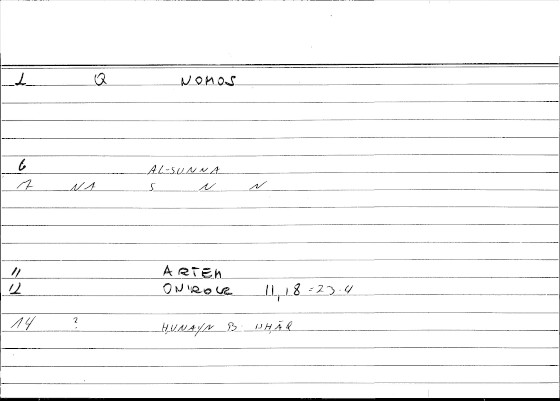 1 Q NOMOS
6 AL-SUNNA
7 NA S N N
11 ARTEM
12 ONIROCR 11,18 = 23.4
14 ? ḤUNAYN B.